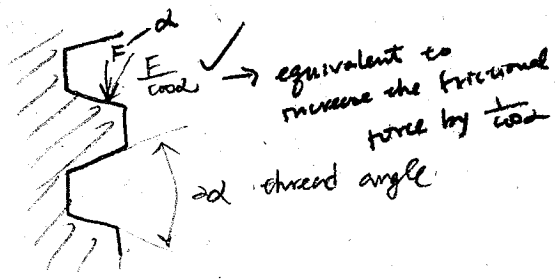 α
F
F/cosα → equivalent to
increase the frictional
force by 1/cosα
2α thread angle